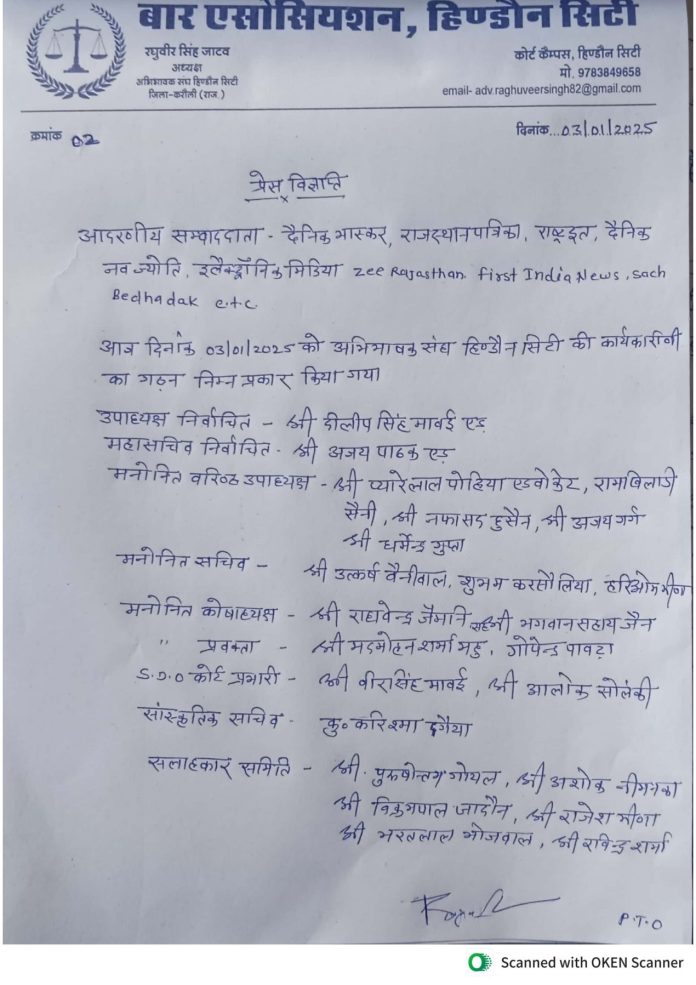 बार एसोसियशन, हिण्डौन सिटी
रघुवीर सिंह जाटव
अध्यक्ष
अभिभाषक संघ हिण्डौन सिटी
जिला-करौली (राज.)
कोर्ट कैम्पस, हिण्डौन सिटी
मो. 9783849658
email- adv.raghuveersingh82@gmail.com
क्रमांक 02
दिनांक...03/01/2025
प्रेस विज्ञप्ति
x
आदरणीय सम्वाददाता - दैनिक भास्कर, राजस्थान पत्रिका, राष्ट्रदूत, दैनिक
नव ज्योति, इलैक्ट्रॉनिक मिडिया zee Rajasthan first India News, sach
Bedhadak e.t.c
आज दिनांक 03/01/2025 को अभिभाषक संघ हिण्डौन सिटी की कार्यकारीणी
का गठन निम्न प्रकार किया गया
उपाध्यक्ष निर्वाचित - श्री दीलीप सिंह मावई एड
महासचिव निर्वाचित - श्री अजय पाठक एड
मनोनित वरिष्ठ उपाध्यक्ष - श्री प्यारेलाल पोहिया एडवोकेट,
सैनी, श्री हुसैन, श्री अजय गर्ग
श्री धर्मेन्द्र गुप्ता
मनोनित सचिव - श्री उत्कर्ष वैनीवाल, शुभम करसौलिया, हरिओम मीणा
मनोनित कोषाध्यक्ष - श्री राघवेन्द्र जैमानि श्री भगवान सहाय जैन
" प्रवक्ता - श्री शर्मा गोपेन्द्र पावटा
S.D.O कोर्ट प्रभारी - श्री वीरसिंह मावई, श्री आलोक सोलंकी
सांस्कृतिक सचिव - कु० करिश्मा
सलाहकार समिति - श्री. पुरुषोत्तम गोयल, श्री अशोक
श्री विक्रमपाल जादौन, श्री राजेश मीणा
श्री भरतलाल भोजवाल, श्री रविन्द्र शर्मा
P.T.O
Scanned with OKEN Scanner